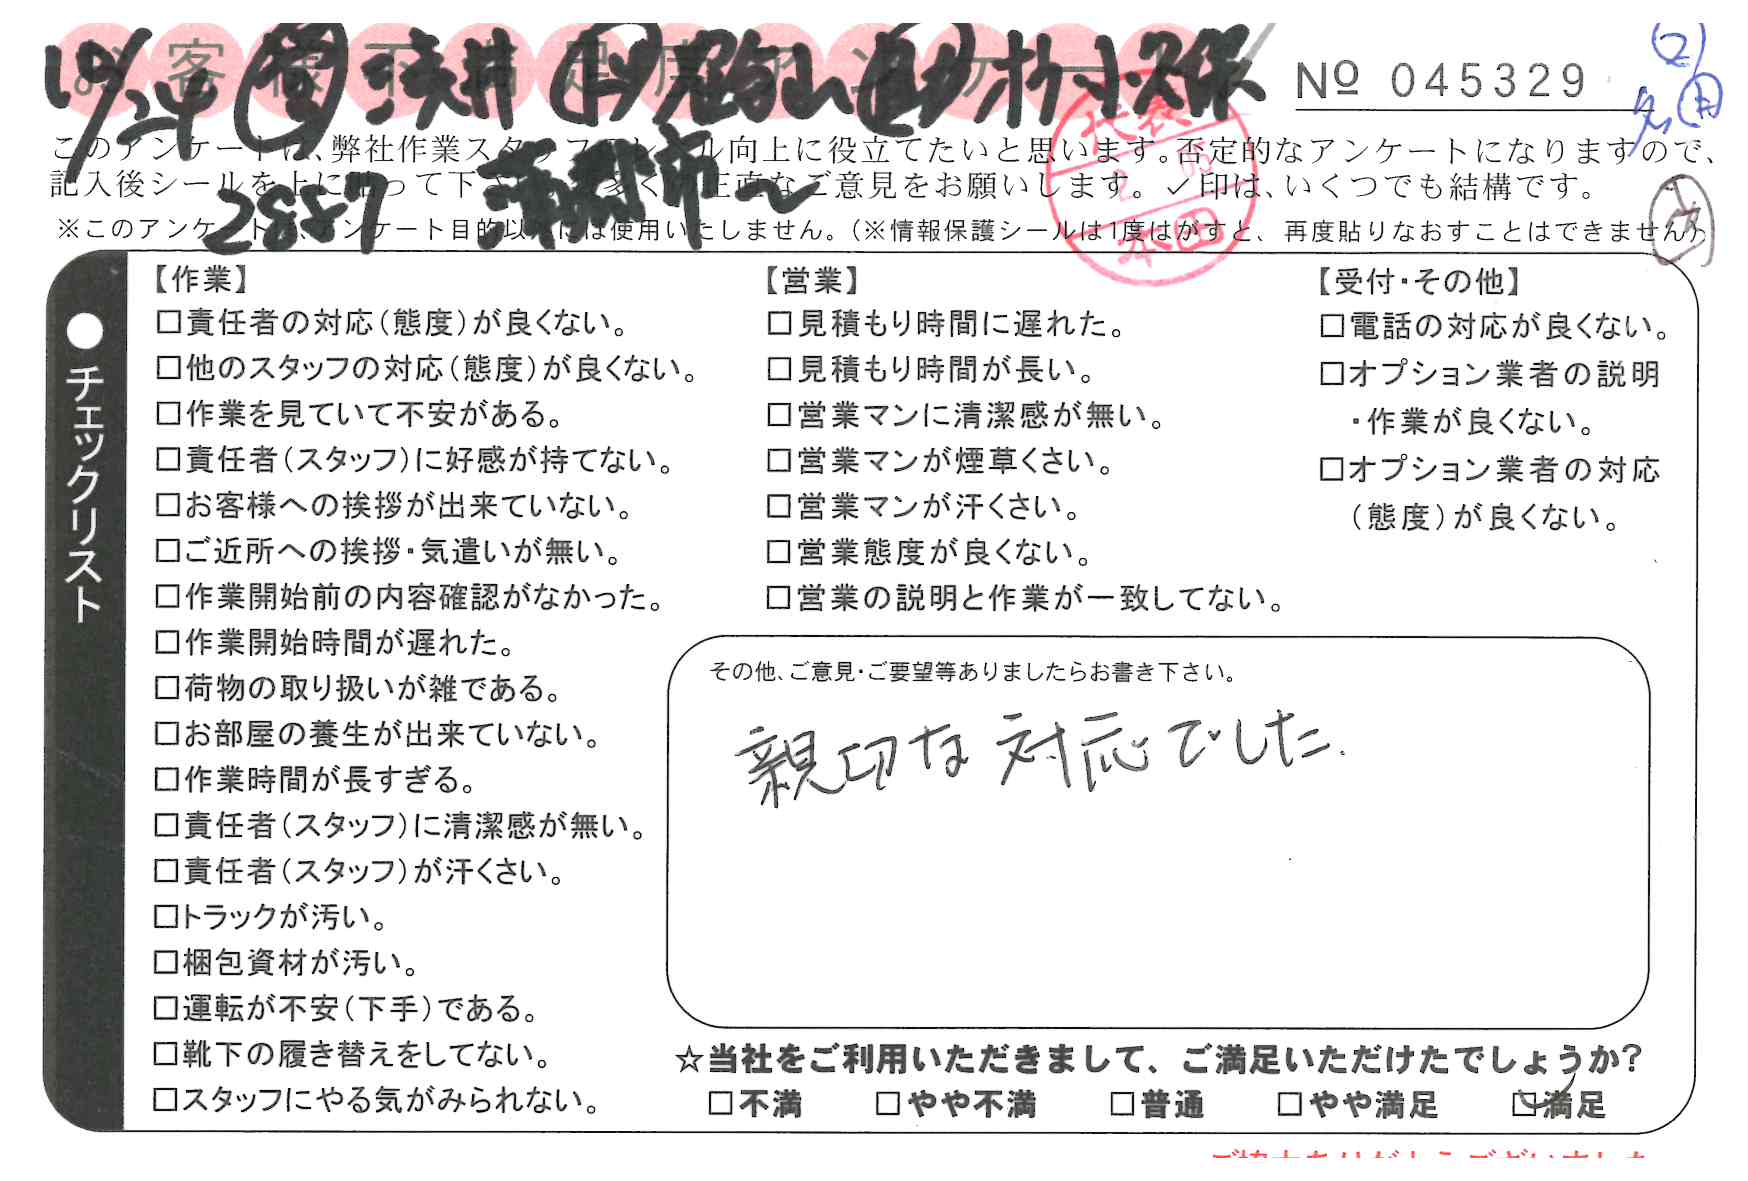 お客様不満足度アンケート
№ 045329
このアンケートは、弊社作業スタッフのレベル向上に役立てたいと思います。否定的なアンケートになりますので、
記入後シールを上に貼って下さい。多くの正直なご意見をお願いします。✓印は、いくつでも結構です。
2887
※このアンケートは、アンケート目的以外には使用いたしません。（※情報保護シールは1度はがすと、再度貼りなおすことはできません）
代表
本田
●チェックリスト
【作業】
□責任者の対応（態度）が良くない。
□他のスタッフの対応（態度）が良くない。
□作業を見ていて不安がある。
□責任者（スタッフ）に好感が持てない。
□お客様への挨拶が出来ていない。
□ご近所への挨拶・気遣いが無い。
□作業開始前の内容確認がなかった。
□作業開始時間が遅れた。
□荷物の取り扱いが雑である。
□お部屋の養生が出来ていない。
□作業時間が長すぎる。
□責任者（スタッフ）に清潔感が無い。
□責任者（スタッフ）が汗くさい。
□トラックが汚い。
□梱包資材が汚い。
□運転が不安（下手）である。
□靴下の履き替えをしてない。
□スタッフにやる気がみられない。
【営業】
□見積もり時間に遅れた。
□見積もり時間が長い。
□営業マンに清潔感が無い。
□営業マンが煙草くさい。
□営業マンが汗くさい。
□営業態度が良くない。
□営業の説明と作業が一致してない。
【受付・その他】
□電話の対応が良くない。
□オプション業者の説明
・作業が良くない。
□オプション業者の対応
（態度）が良くない。
その他、ご意見・ご要望等ありましたらお書き下さい。
親切な対応でした.
☆当社をご利用いただきまして、ご満足いただけたでしょうか?
□不満 □やや不満 □普通 □やや満足 ☑満足
ご協力ありがとうございました